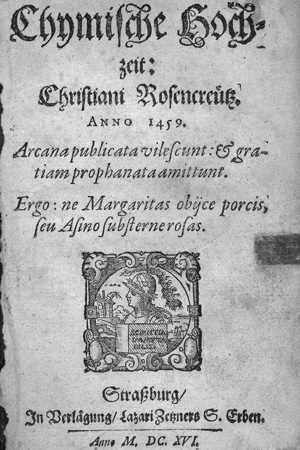 Chymische Hoch-
zeit:
Christiani Rosencreütz.
ANNO 1459.
Arcana publicata vilescunt: & gra-
tiam prophanata amittunt.
Ergo: ne Margaritas obijce porcis,
seu Asino substerne rosas.
SCIENTIA
IMMUTA
BILIS
Straßburg/
In Verlägung/ Lazari Zetzners S. Erben.
Anno M. DC. XVI.